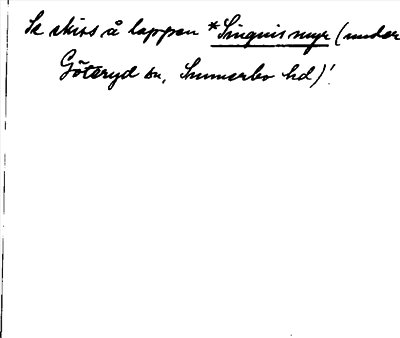 Se skiss å lappen *Singuis myr (under
Göteryd sn, Sunnerbo hd)!